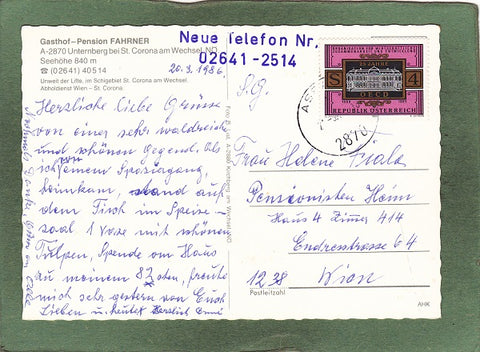 Gasthof-Pension FAHRNER
A-2870 Unternberg bei St. Corona am Wechsel, NÖ
Seehöhe 840 m
☎ (02641) 40514
Umweit der Lifte, im Schigebiet St. Corona am Wechsel.
Abholdienst Wien – St. Corona.
20.3.1986.
Neue Telefon Nr.
02641-2514
Herzliche liebe Grüsse
von einer sehr waldreich
und schönen Gegend. Als
von einem Spaziergang,
heimkam, stand auf
dem Tisch im Speise-
saal 1 Vase mit schönen
Tulpen, Spende vom Haus
zu meinem 82sten, freute
mich sehr gestern von Euch
Lieben u. heute
Herzlich
25 JAHRE
OECD
S 4
REPUBLIK ÖSTERREICH
2870
S.G.
Frau Helene
Pensionisten Heim
Haus 4 Zimmer 414
Endresstrasse 64
1238 Wien
Postleitzahl
AHK